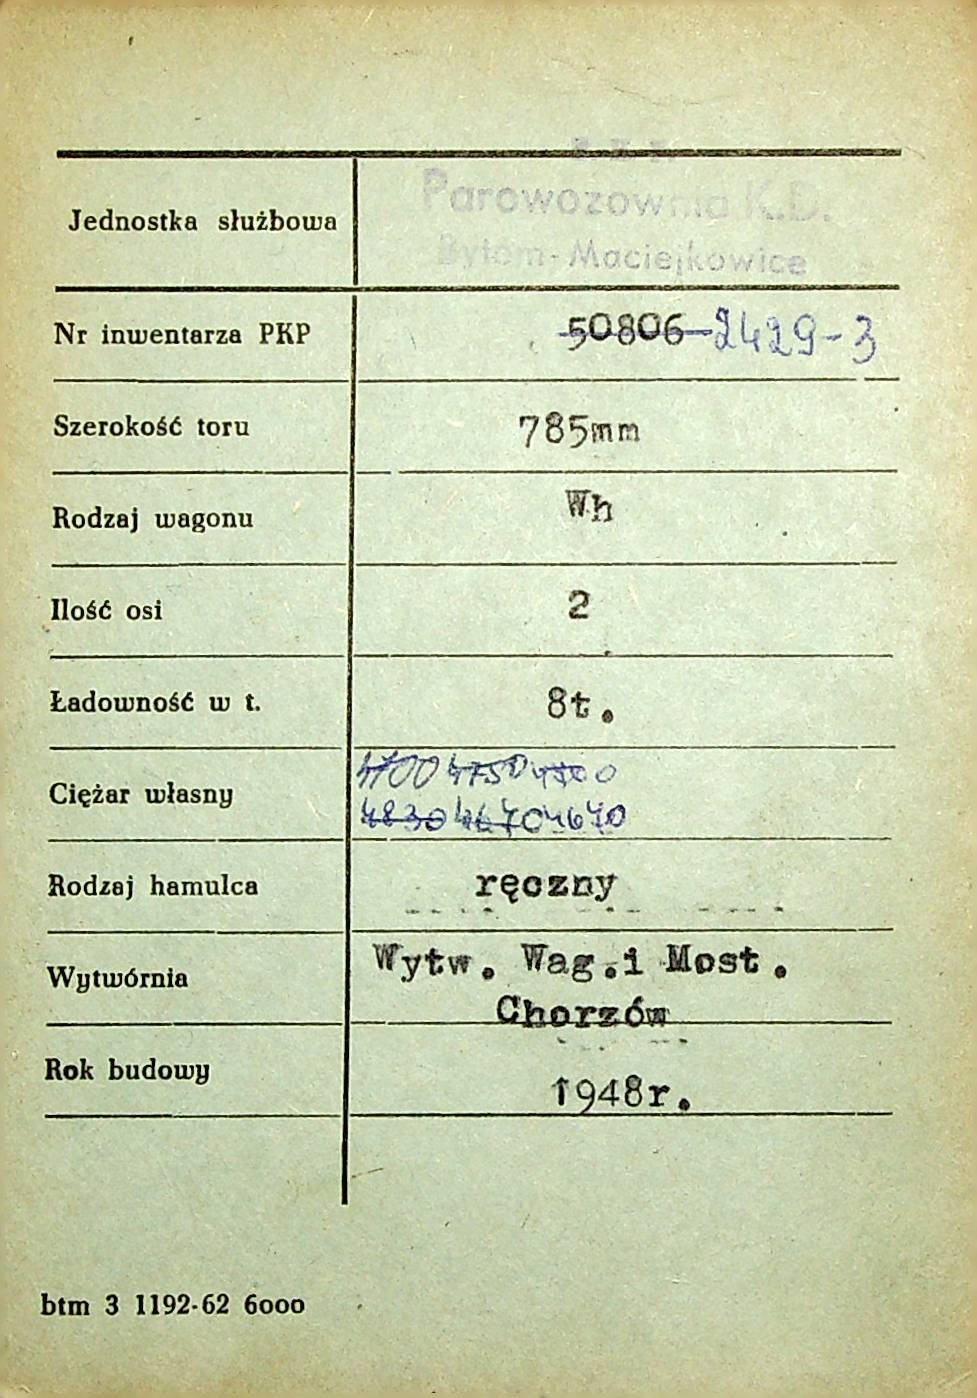 P. K. P.
Parowozownia K.D.
Bytom-Maciejkowice
Jednostka służbowa
Nr inwentarza PKP 50806 2429-3
Szerokość toru 785mm
Rodzaj wagonu Wh
Ilość osi 2
Ładowność w t. 8t.
4700 4750 4700
Ciężar własny
4830 4670 4640
Rodzaj hamulca ręczny
Wytwórnia Wytw. Wag.i Most.
Chorzów
Rok budowy 1948r.
btm 3 1192-62 6000